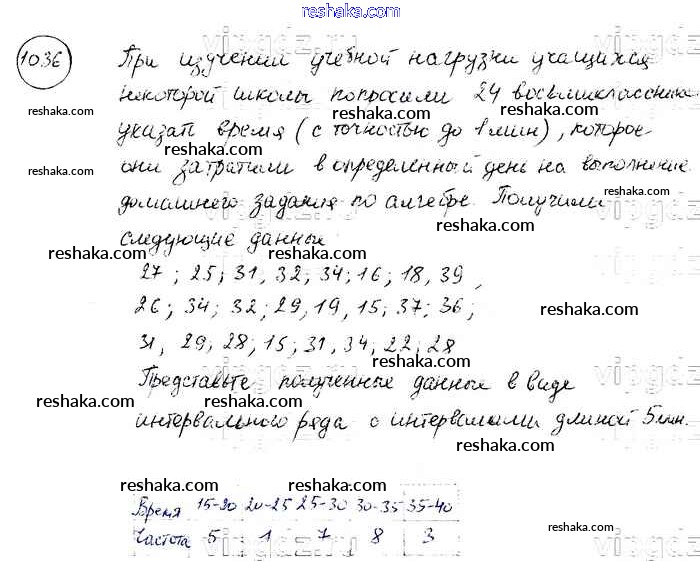 reshaka.com
1036 При изучении учебной нагрузки учащихся
reshaka.com
некоторой школы попросили 24 восьмиклассника
reshaka.com reshaka.com
указать время (с точностью до 1 мин), которое
reshaka.com
они затратили в определенный день на выполнение
reshaka.com
домашнего задания по алгебре. Получили
reshaka.com reshaka.com
следующие данные
reshaka.com reshaka.com
27; 25; 31, 32; 34; 16; 18, 39
26; 34; 32; 29, 19, 15; 37; 36;
reshaka.com
31, 29; 28; 15; 31, 34, 22; 28
reshaka.com
Представьте полученные данные в виде
reshaka.com reshaka.com
интервального ряда с интервалами длиной 5 мин.
reshaka.com
reshaka.com reshaka.com
Время 15-20 20-25 25-30 30-35 35-40
reshaka.com
Частота 5 1 7 8 3
reshaka.com